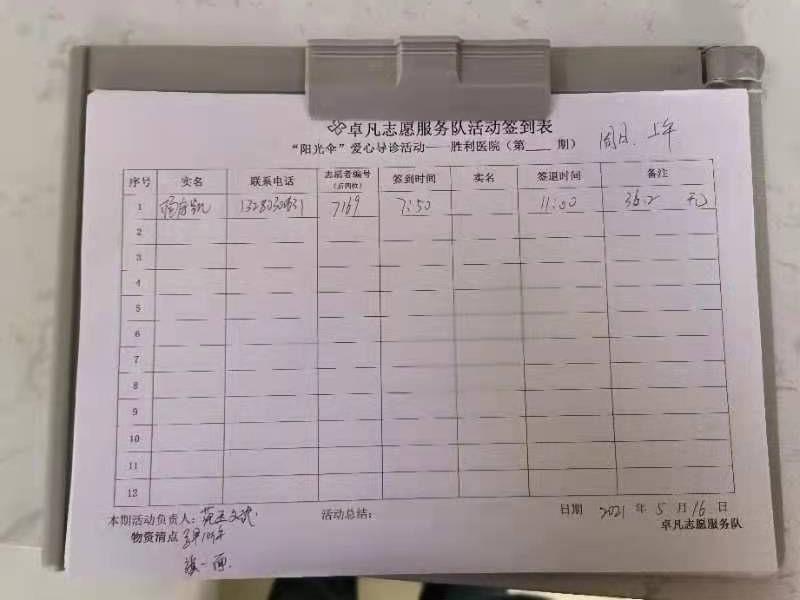 卓凡志愿服务队活动签到表
"阳光伞"爱心导诊活动——胜利医院（第 期） 周日、上午
序号 实名 联系电话 志愿者编号（后四位） 签到时间 实名 签退时间 备注
1 7169 7:50 11:00 36.2
2
3
4
5
6
7
8
9
10
11
12
本期活动负责人： 活动总结： 日期 2021 年 5 月 16 日
物资清点 卓凡志愿服务队